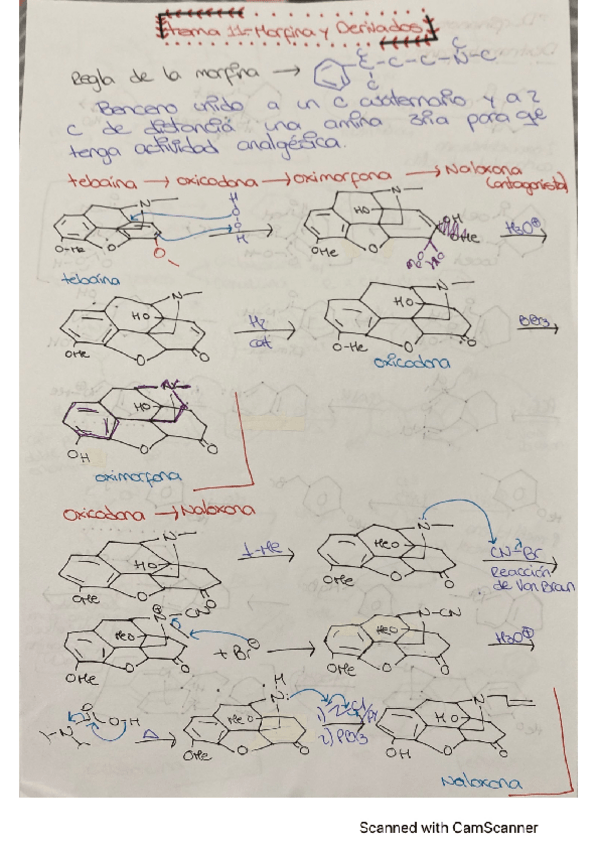 tema 11-Morfina y Derivados
Regla de la morfina →
C
C-C-C-N-C
C
Benceno unido a un C cuaternario y a 2
C de distancia una amina 3ria para qe
tenga actividad analgésica.
tebaína → oxicodona → oximorfona → Naloxona
(antagonista)
N
H
O
O
H
O-Me
O
O
N
HO
OMe
O
OH
OMe
H₃O⊕
tebaína
N
HO
OMe
O
O
H₂
cat
N
HO
O-Me
O
O
BBr₃
oxicodona
HO
OH
O
O
oximorfona
Oxicodona → Naloxona
N
HO
OMe
O
O
I-Me
N
MeO
OMe
O
O
CN-Br
Reacción
de Von Braun
N-CN
MeO
OMe
O
O
+ Br⊖
N-CN
MeO
OMe
O
O
H₃O⊕
O
O-H
N
Δ
H
N
MeO
OMe
O
O
1)
2)
N
HO
OH
O
O
Naloxona
Scanned with CamScanner